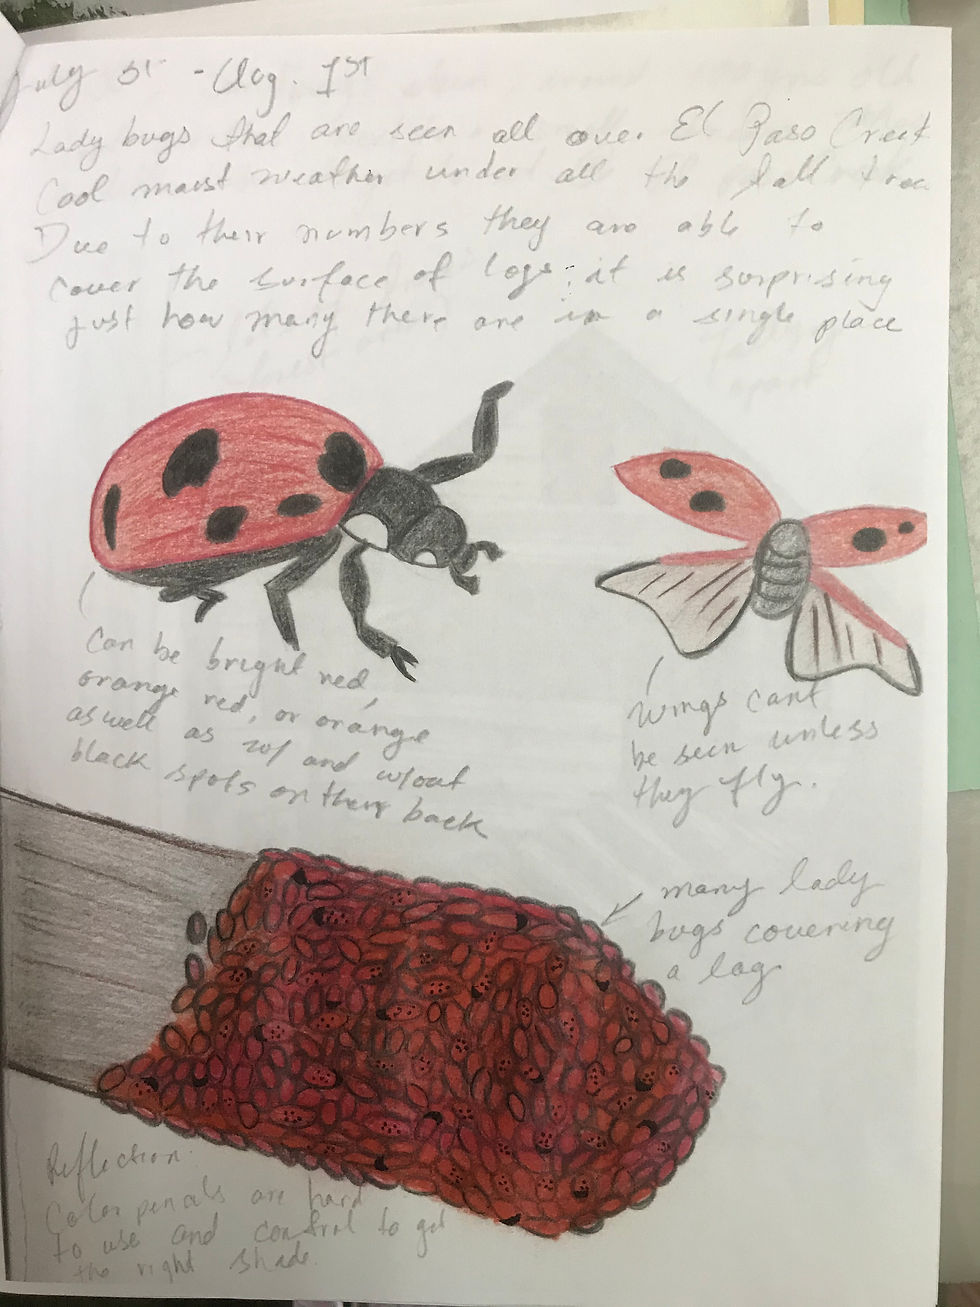 July 31st - Aug. 1st
Lady bugs that are seen all over El Paso Creek
Cool moist weather under all the tall trees
Due to their numbers they are able to
cover the surface of logs; it is surprising
just how many there are in a single place
Can be bright red,
orange red, or orange
as well as w/ and w/out
black spots on their back
Wings cant
be seen unless
they fly.
many lady
bugs covering
a log
Reflection:
Color pencils are hard
to use and control to get
the right shade.